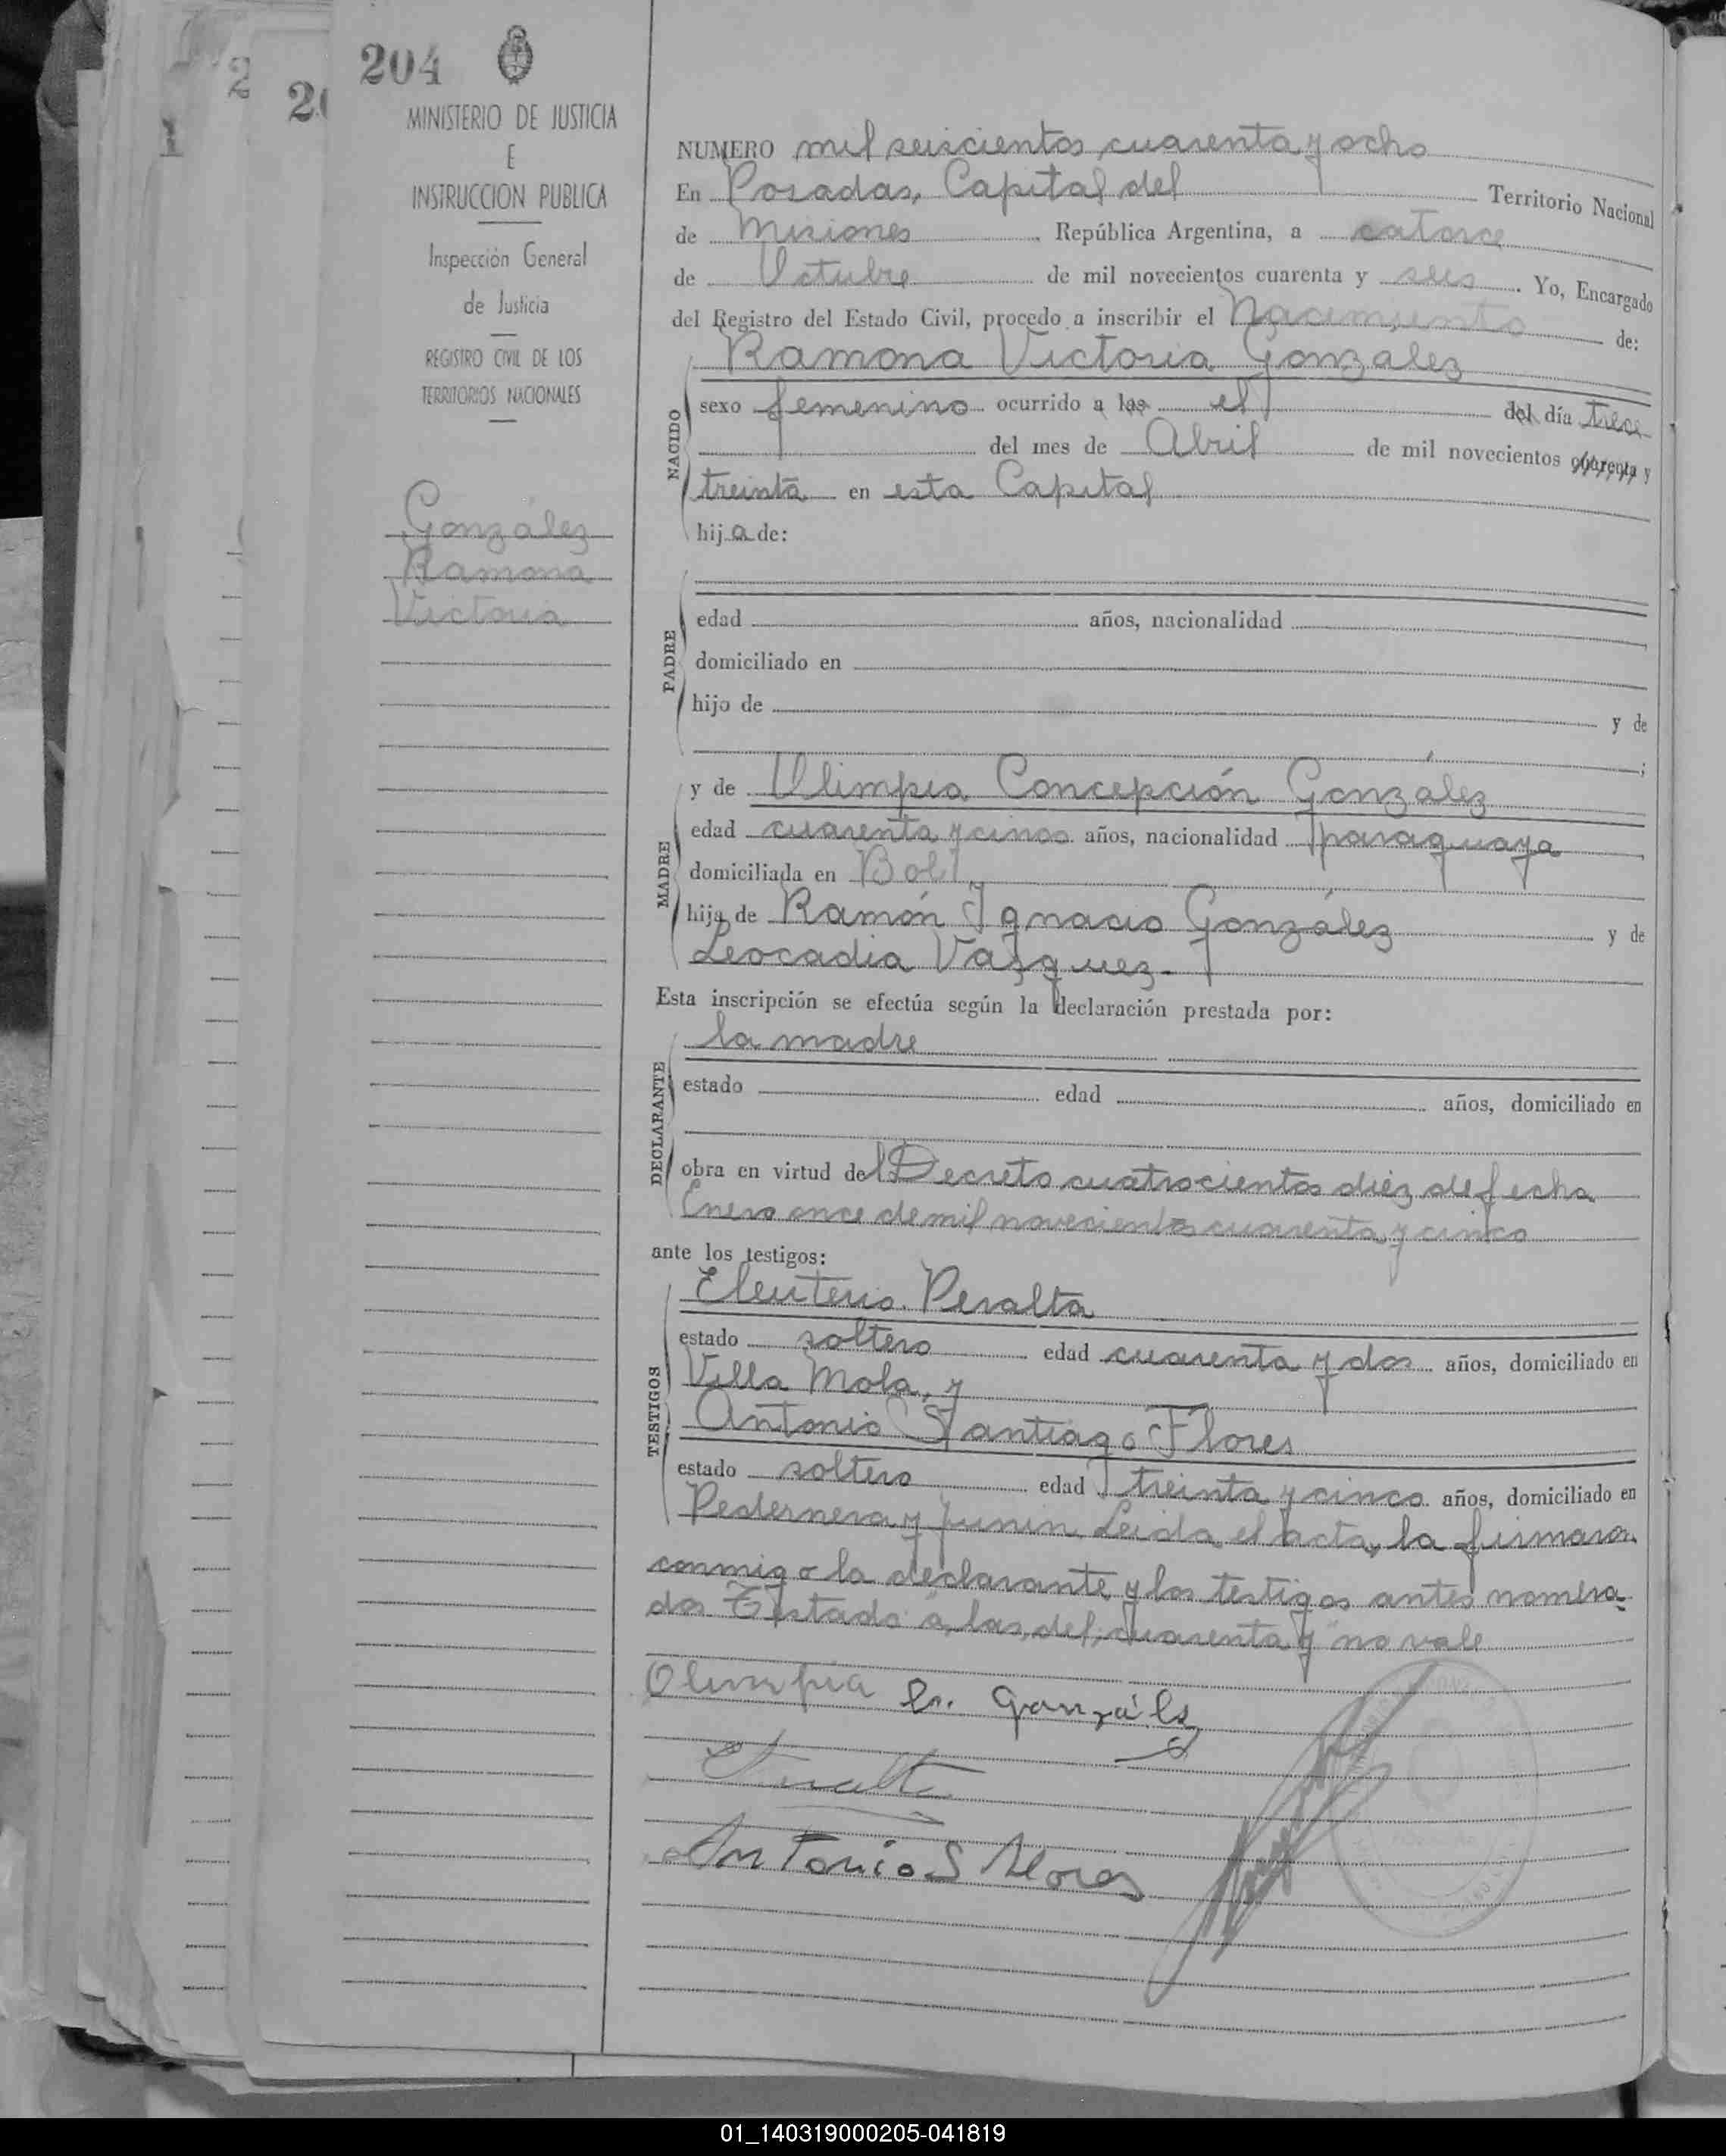 204
MINISTERIO DE JUSTICIA
E
INSTRUCCION PUBLICA
Inspección General
de Justicia
REGISTRO CIVIL DE LOS
TERRITORIOS NACIONALES
González
Ramona
Victoria
NUMERO mil seiscientos cuarenta y ocho
En Posadas, Capital del Territorio Nacional
de Misiones República Argentina, a catorce
de Octubre de mil novecientos cuarenta y seis. Yo, Encargado
del Registro del Estado Civil, procedo a inscribir el Nacimiento de:
Ramona Victoria Gonzalez
NACIDO
sexo femenino ocurrido a las el del día trece
del mes de Abril de mil novecientos cuarenta y
treinta en esta Capital
hija de:
PADRE
edad años, nacionalidad
domiciliado en
hijo de y de
;
y de Olimpia Concepción González
MADRE
edad cuarenta y cinco años, nacionalidad paraguaya
domiciliada en
hija de Ramón Ignacio González y de
Leocadia Vazquez.
Esta inscripción se efectúa según la declaración prestada por:
la madre
DECLARANTE
estado edad años, domiciliado en
obra en virtud del Decreto cuatrocientos diéz de fecha
Enero once de mil novecientos cuarenta y cinco
ante los testigos:
Eleuterio Peralta
TESTIGOS
estado soltero edad cuarenta y dos años, domiciliado en
Villa Mola, y
Antonio Santiago Flores
estado soltero edad treinta y cinco años, domiciliado en
Pedernera y Junin. Leida el acta, la firmaron
conmigo la declarante y los testigos antes nomina-
dos Testado "a, las, del, cuarenta y" no vale
Olimpia C. González
Peralta
Antonio S Flores
01_140319000205-041819